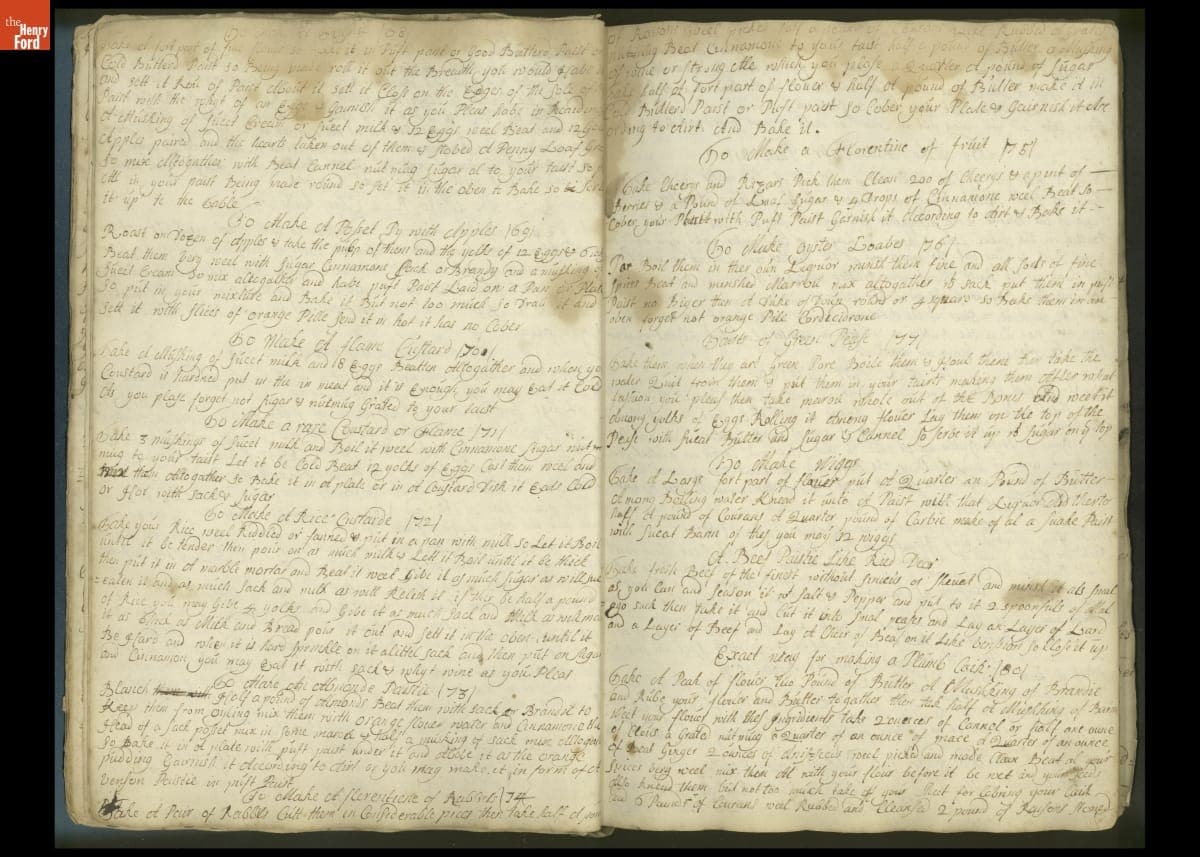 the
Henry
Ford
part of paist or Good Butterd Paist
Cold Butterd Paist so Being made roll it out the Breadth you would
and sett it Row of Paist about it sett it Closs on the Egges of the sole of
Paist with the whyt of an Egge & Gairnish it as you Pleas habe in Readiness
A Mutsking of sueet Cream or sueet milk & 12 Eggs weel Beat and 12
Apples paired and the hearts taken out of them & A Penny Loaf
so mix altogather with Beat Cannel nutmug sugar al to your tast so
in your paist Being made round so set it in the oben to Bake so
it up to the table
To Make A Posset Py with Apples 169
Roast on Dozen of Apples & take the pulp of them and the yelks of 12 Eggs &
Beat them bery weel with Sugar Cinnamone Sack or Brandy and a mutsking of
Sueet Cream So mix altogather and habe puft Paist Laid on a Pan or Plate
so put in your mixture and Bake it But not too much so Drau it and
sett it with slices of orange Pille send it in hot it has no Cober
To Make A flame Custard 170
Take A Mutsking of sueet milk and 18 Eggs Beatten altogather and when your
Coustard is hardned put in the meat and it is Enough, you may Eat it Cold
As you please forget not sugar & nutmug Grated to your taist
To Make a rare Coustard or flame 171
Take 3 mutskings of sueet milk and Boil it weel with Cinnamone Sugar nut
mug to your tast Let it be Cold Beat 12 yolks of Eggs Cast them weel and
them altogather so Bake it in A plate or in A Coustard Dish it Eats Cold
or Hot with sack & sugar
To Make A Rice Custarde 172
Take your Rice weel Riddled or fanned & put in a pan with milk so Let it Boil
until it be tender then pour on as much milk & Lett it Boil until it be thick
then put it in A marble mortar and Beat it weel Gibe it as much sugar as will
eaten it and as much sack and milk as will Relish it if this be half a pound
of Rice you may Gibe 4 yolks and Gibe it as much sack and Milk as will
it as thick as Milk and Bread pour it out and sett it in the oben until it
Be Hard and when it is hard sprinkle on it alittel sack and then put on sugar
and Cinnamon you may Eat it with sack & whyt wine as you Pleas
To Make An Almonde Paistie 173
Blanch Half a pound of Almonds Beat them with sack or Brandie to
Keep them from oyling mix them with orange flower water and Cinnamone the
Head of a sack posset mix in some marow & half a mutsking of sack mixe altogather
So Bake it in A plate with puft paist under it and aboue it as the orange
pudding Garnish it according to Airt or you may make it in form of A
venison Paistie in puft Paist
To Make A florentiene of Rabbits 174
Take A Pair of Rabbits Cutt them in Considerable pieces then take half A
of Raisons weel
nutmug Beat Cinnamone to your tast half a pound of Butter a mutsking
of wine or strong Ale which you please a Quarter A pound of sugar
half A fort part of flower & half A pound of Butter make it in
Butterd Paist or Puft paist so Cober your Plate & Gairnish it
ording to Airt And Bake it.
To Make a Florentine of fruit 175
Take Cheerys and Rizars Pick them Clean 200 of Cheerys & a pint of
Berries & a Pound of Loaf Sugar & 4 Drops of Cinnamone weel Beat So
Cober your with Puft Paist Garnish it According to Airt & Beake it
To Make oyster Loabes 176
Par Boil them in ther oun Liquor minsh them fine and all sorts of fine
spices Beat and minshed Marrou mix altogather wt sack put them in puft
Paist no Biger then A Dukes of Doun round or 4 squaro so Bake them in an
oben forget not orange Pill Cordecidrone
Tairts of Green Pease 177
Take them when they are Green Pare Boile them & skoul them then take the
water Quit from them & put them in your tairt making them after what
fashion you please then take marow whole out of the Bones and weet it
Among yolks of Eggs Rolling it Among flouer Lay them on the top of the
Pease with sueat Butter and Sugar & Cannel so serbe it up wt sugar on it top
To Make Wigges
Take A Large fort part of flouer put A Quarter an Pound of Butter
among Boiling water Knead it into A Paist with that Liquor Add therto
half A pound of Courans A Quarter pound of Carbie make of al a Paist
with sueat Barm of this you may 12 wiggs
A Beef Paistie Like Ried Deer
Take fresh Beef of the finest without Sineus or Skeuet and minsh it als smal
as you Can and Season it wt salt & Pepper and put to it 2 spoonfuls of
sack then take it and Cut it into smal peaks and Lay an Layer of Lard
and a Layer of Beef and Lay A Cheir of Beaf on it Like benison so Close it up
Exact recy for making a Plumb Cack 180
Take A Peak of flouer two Pound of Butter A Mutsking of Brandie
and Rube your flouer and Butter to gather then tak half A Mutsking of Barm
Weet your flouer with thes ingridients take 2 ounces of Cannel or half ane ounce
of Cleus a Grate nutmug a Quarter of an ounce of mace A Quarter of an ounce
of Beat Ginger 2 ounces of Anisseeds weel picked and made Clean Beat al your
spices bery weel mix them All with your flour before it be wet and your seeds
Also Knead them but not too much take of your sheet for cobring your Cack
and 6 Pounds of Courans weel Rubbed and Cleansed 2 pound of Raisons stoned